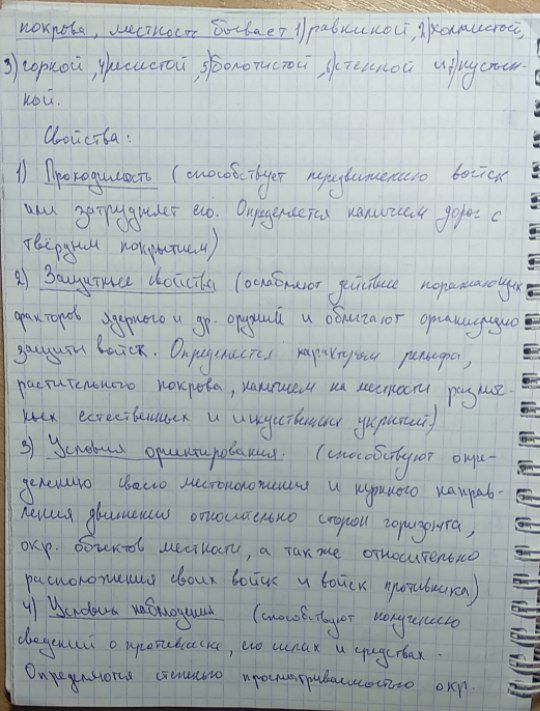 покрова, местность бывает 1) равниной, 2) холмистой,
3) горной, 4) лесистой, 5) болотистой, 6) степной и 7) пустын-
ной.
Свойства:
1) Проходимость (способствует передвижению войск
или затрудняет его. Определяется наличием дорог с
твёрдым покрытием)
2) Защитные свойства (ослабляют действие поражающих
факторов ядерного и др. оружий и облегчают организацию
защиты войск. Определяется характером рельефа,
растительного покрова, наличием на местности различ-
ных естественных и искуственных укрытий)
3) Условия ориентирования. (способствуют опре-
делению своего местоположения и нужного направ-
ления движения относительно сторон горизонта,
окр. объектов местности, а также относительно
расположения своих войск и войск противника)
4) Условия наблюдения (способствуют получению
сведений о противнике, его силах и средствах.
Определяются степенью просматриваемостью окр.